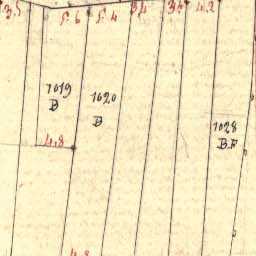 3.5
5.6 5.4 3.4 3.4 4.2
1019
B
1020
B
1028
B.F
4.8
4.8